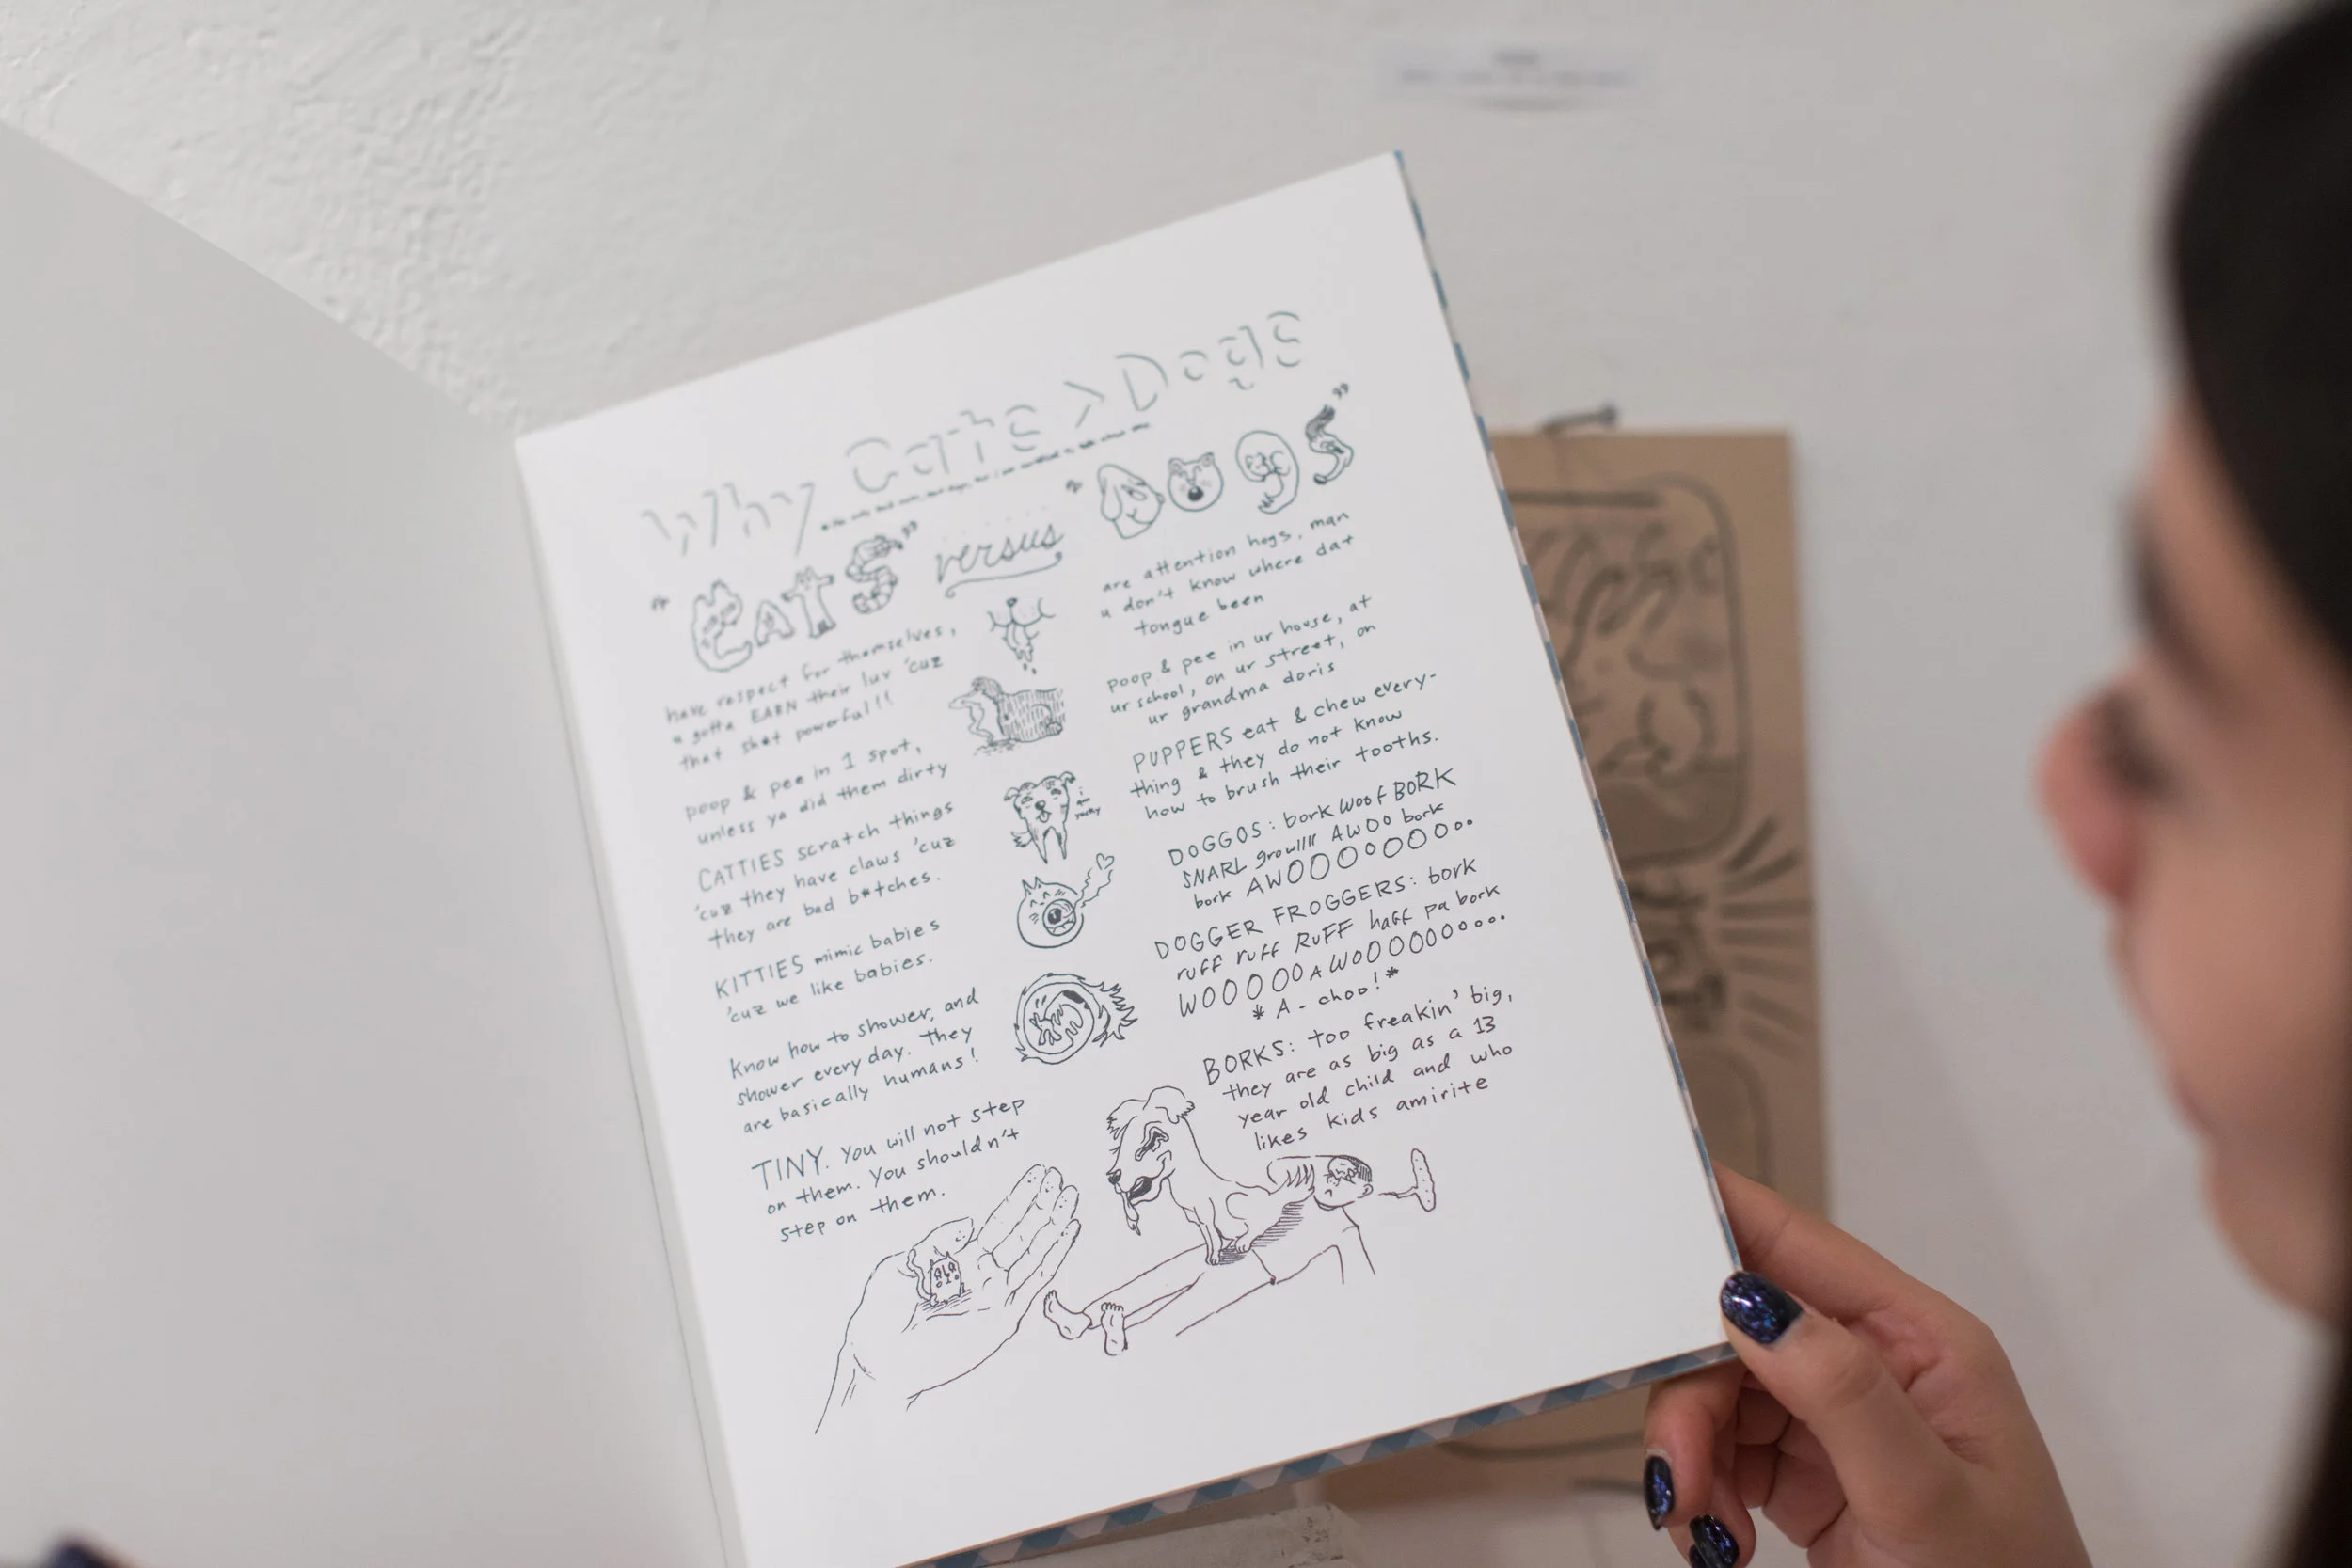 Why Cats > Dogs
"CATS" versus "DOGS"
have respect for themselves,
u gotta EARN their luv 'cuz
that sh*t powerful!!
poop & pee in 1 spot,
unless ya did them dirty
CATTIES scratch things
'cuz they have claws 'cuz
they are bad b*tches.
KITTIES mimic babies
'cuz we like babies.
know how to shower, and
shower every day. They
are basically humans!
TINY. You will not step
on them. You shouldn't
step on them.
i
am
are attention hogs, man
u don't know where dat
tongue been
poop & pee in ur house, at
ur school, on ur street, on
ur grandma doris
PUPPERS eat & chew every-
thing & they do not know
how to brush their tooths.
DOGGOS: bork woof BORK
SNARL growllll AWOO bork
bork AWOOOOOOOoo
DOGGER FROGGERS: bork
ruff ruff RUFF haff pa bork
WOOOOOAWOOOOOOoooo
*A-choo!*
BORKS: too freakin' big,
they are as big as a 13
year old child and who
likes kids amirite